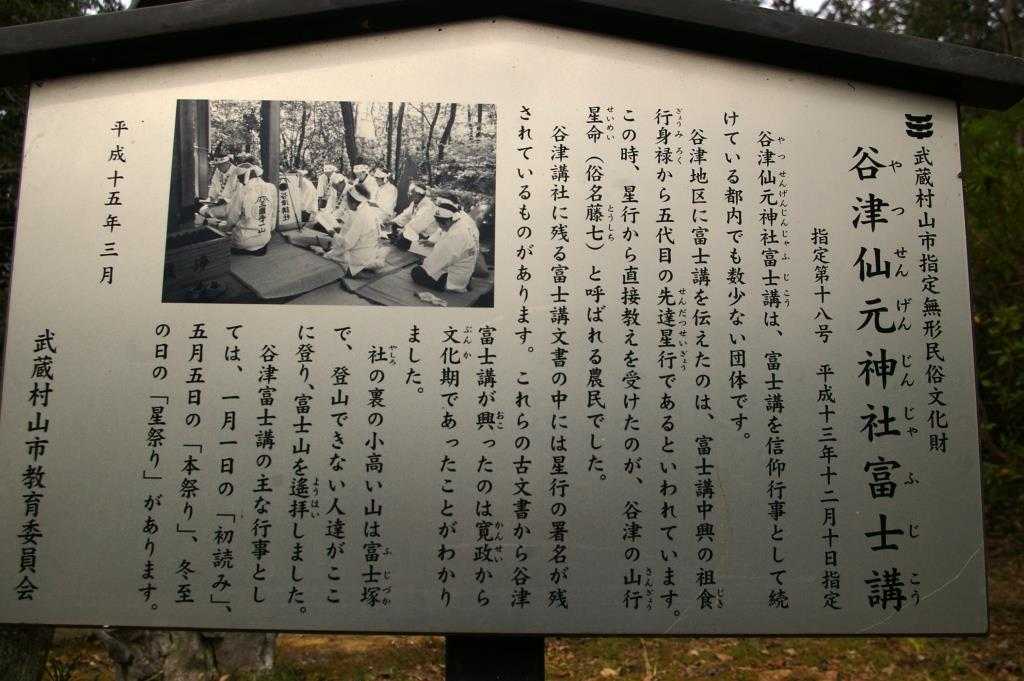 武蔵村山市指定無形民俗文化財
谷津仙元神社富士講
やつせんげんじんじゃふじこう
指定第十八号　平成十三年十二月十日指定
谷津仙元神社富士講は、富士講を信仰行事として続
やつせんげんじんじゃふじこう
けている都内でも数少ない団体です。
谷津地区に富士講を伝えたのは、富士講中興の祖食
じき
行身禄から五代目の先達星行であるといわれています。
ぎょうみろく　せんだつせいぎょう
この時、星行から直接教えを受けたのが、谷津の山行
さんぎょう
星命（俗名藤七）と呼ばれる農民でした。
せいめい　とうしち
谷津講社に残る富士講文書の中には星行の署名が残
されているものがあります。これらの古文書から谷津
富士講が興ったのは寛政から
おこ　かんせい
文化期であったことがわかり
ぶんか
ました。
社の裏の小高い山は富士塚
やしろ　ふじづか
で、登山できない人達がここ
に登り、富士山を遙拝しました。
ようはい
谷津富士講の主な行事とし
ては、一月一日の「初読み」、
五月五日の「本祭り」、冬至
の日の「星祭り」があります。
平成十五年三月
武蔵村山市教育委員会